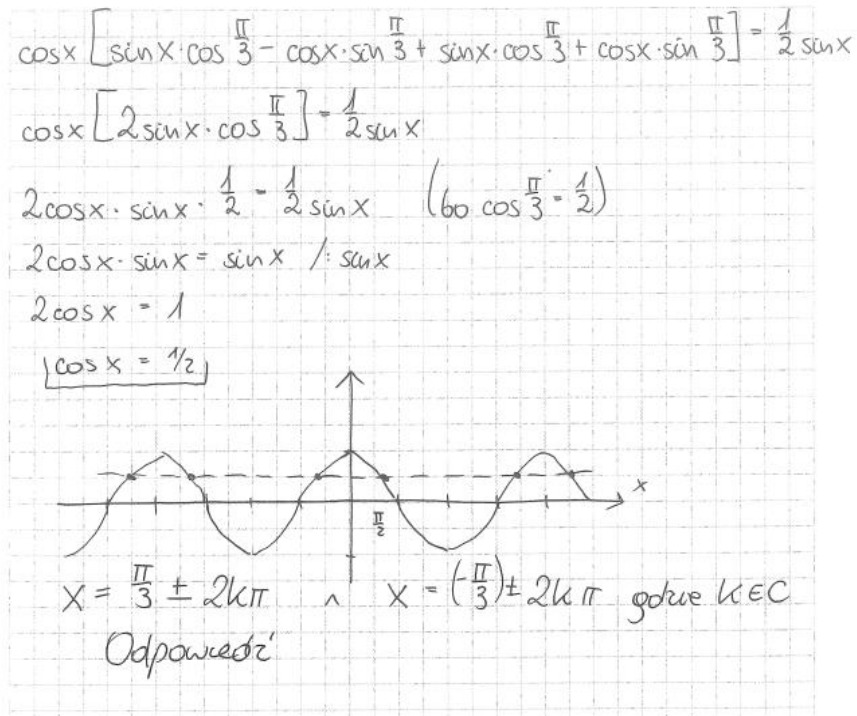 cosx [sinx·cos π/3 - cosx·sin π/3 + sinx·cos π/3 + cosx·sin π/3] = 1/2 sinx
cosx [2sinx·cos π/3] = 1/2 sinx
2cosx·sinx·1/2 = 1/2 sinx (bo cos π/3 = 1/2)
2cosx·sinx = sinx /: sinx
2cosx = 1
cosx = 1/2
x
π/2
x = π/3 ± 2kπ ∧ x = (-π/3) ± 2kπ gdzie k∈C
Odpowiedź